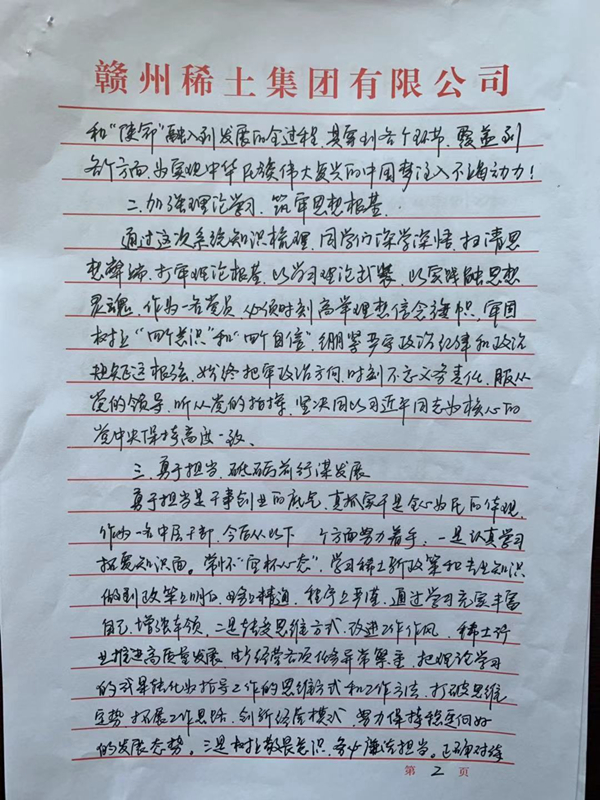 赣州稀土集团有限公司
和“使命”融入到发展的全过程，贯穿到各个环节，覆盖到
各个方面，为实现中华民族伟大复兴的中国梦注入不竭动力！
二、加强理论学习，筑牢思想根基。
通过这次系统知识梳理，同学们深学深悟，扫清思
想弊端，打牢理论根基，以学习理论武装，以实践触思想
灵魂。作为一名党员，必须时刻高举理想信念旗帜，牢固
树立“四个意识”和“四个自信”，绷紧严守政治纪律和政治
规矩这根弦，始终把牢政治方向，时刻不忘义务责任，服从
党的领导，听从党的指挥，坚决同以习近平同志为核心的
党中央保持高度一致。
三、勇于担当，砥砺前行谋发展
勇于担当是干事创业的底气，真抓实干是全心为民的体现。
作为一名中层干部，今后从以下 个方面努力着手：一是认真学习
拓宽知识面。常怀“空杯心态”，学习稀土新政策和专业知识
做到政策上明白，业务上精通，程序上严谨，通过学习充实丰富
自己，增强本领。二是转变思维方式，改进工作作风，稀土行
业推进高质量发展，生产经营各项任务异常繁重，把理论学习
的成果转化为指导工作的思维方式和工作方法，打破思维
定势，拓展工作思路，创新经营模式，努力保持稳定向好
的发展态势。三是树立敬畏意识，务必廉洁担当。正确对待
第 2 页